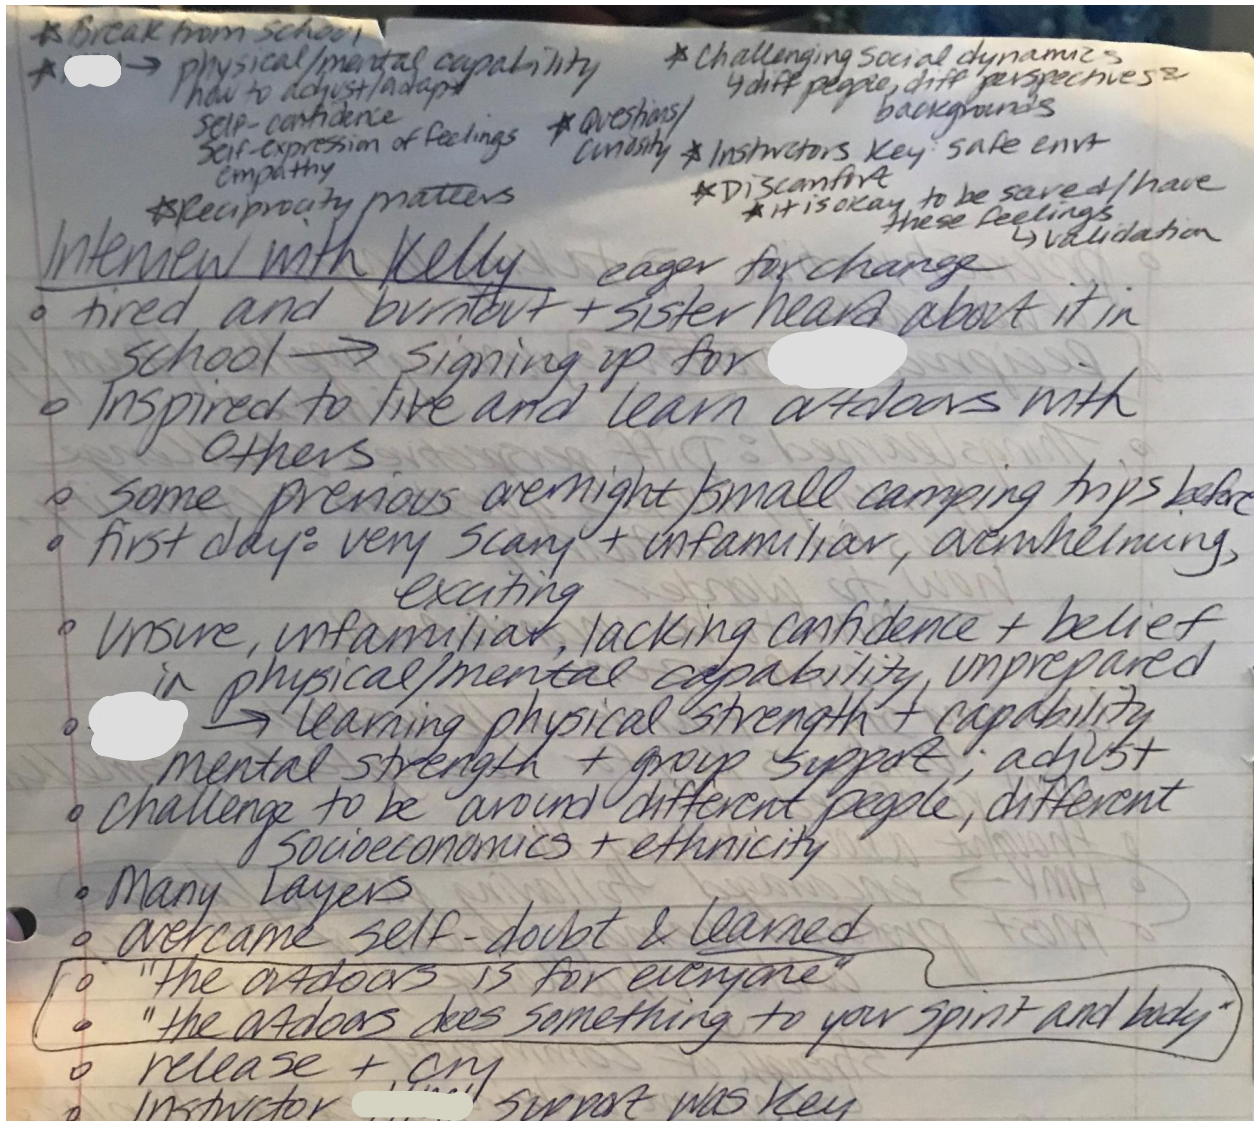 * Break from school
* → physical/mental capability
how to adjust/adapt
self-confidence
self-expression of feelings
empathy
* Reciprocity matters
* Questions/
curiosity
* Challenging social dynamics
↳ diff people, diff perspectives &
backgrounds
* Instructors key: safe envt
* Discomfort
* it is okay to be saved/have
these feelings
↳ validation
Interview with Kelly eager for change
• tired and burntout + sister heard about it in
school → signing up for
• Inspired to live and learn outdoors with
others
• some previous overnight/small camping trips before
• first day: very scary + unfamiliar, overwhelming,
exciting
• Unsure, unfamiliar, lacking confidence + belief
in physical/mental capability, unprepared
• → learning physical strength + capability
mental strength + group support; adjust
• challenge to be around different people, different
socioeconomics + ethnicity
• Many Layers
• overcame self-doubt & learned
• "the outdoors is for everyone"
• "the outdoors does something to your spirit and body"
• release + cry
• Instructor support was key